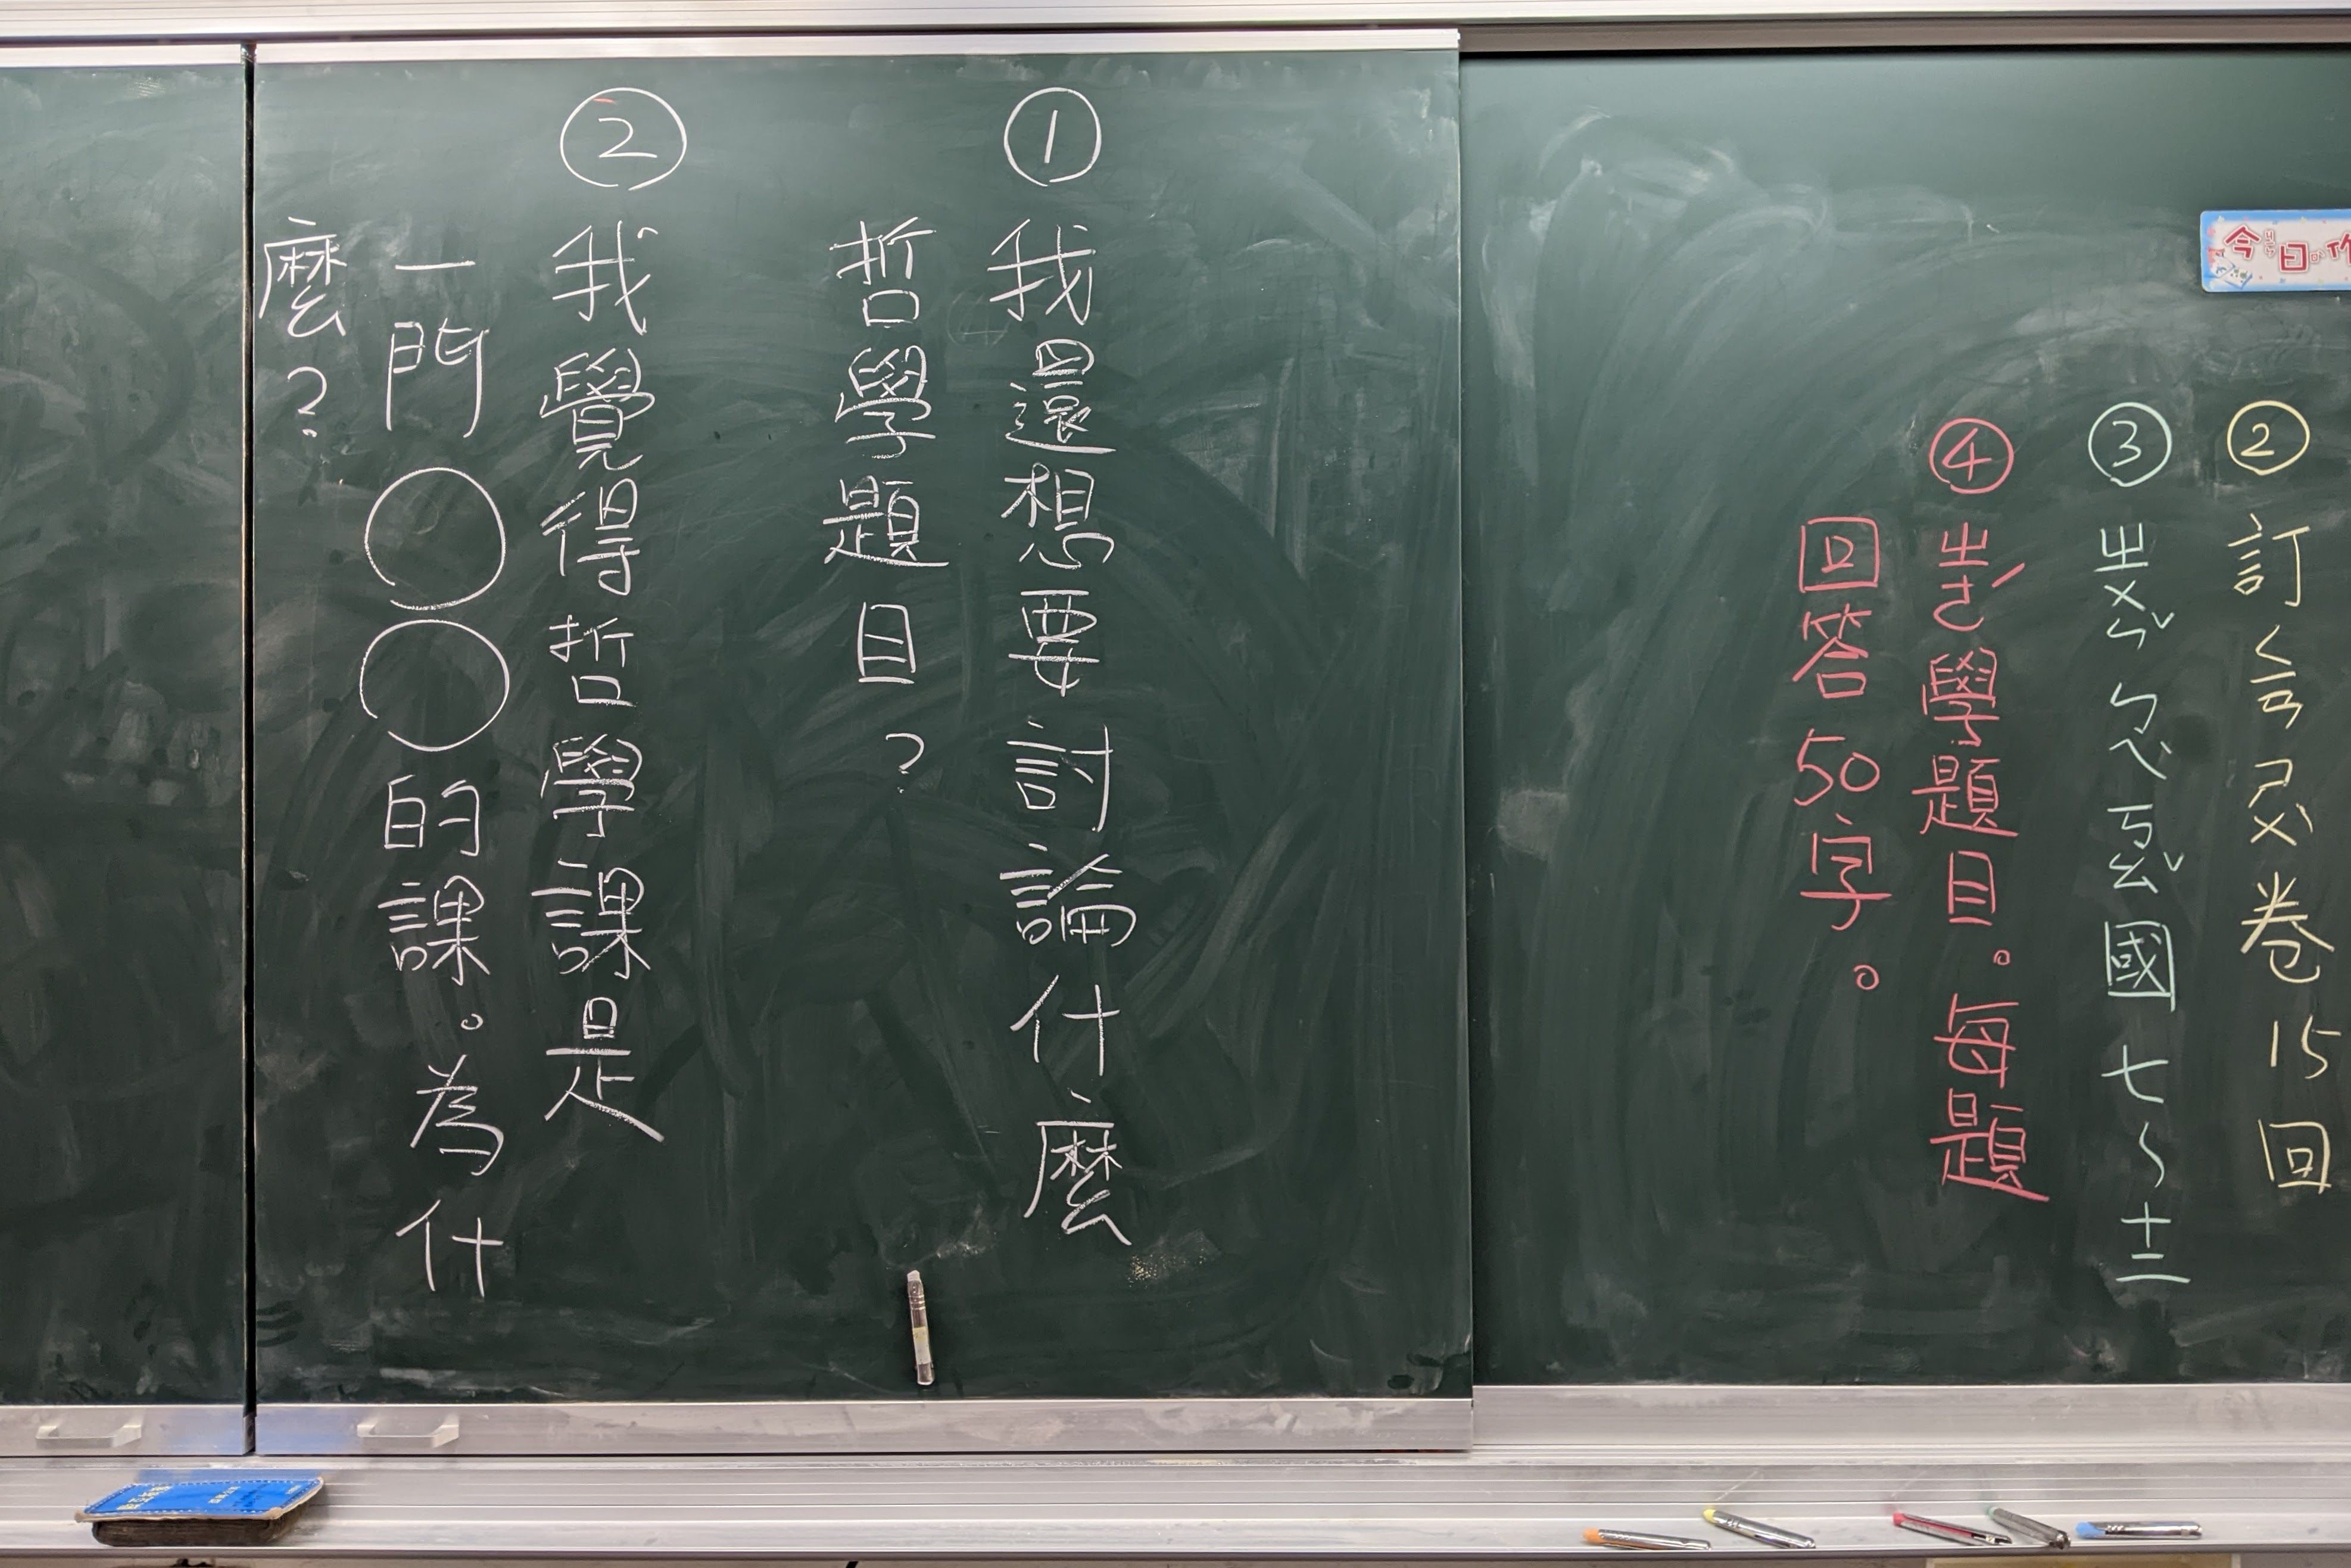 今日作
②訂卷15回
③ㄓㄨㄣˇㄅㄟˋㄎㄠˇ國七~十二
④ㄓㄜˊ學題目。每題
回答50字。
①我還想要討論什麼
哲學題目?
②我覺得哲學課是
一門○○的課。為什
麼?